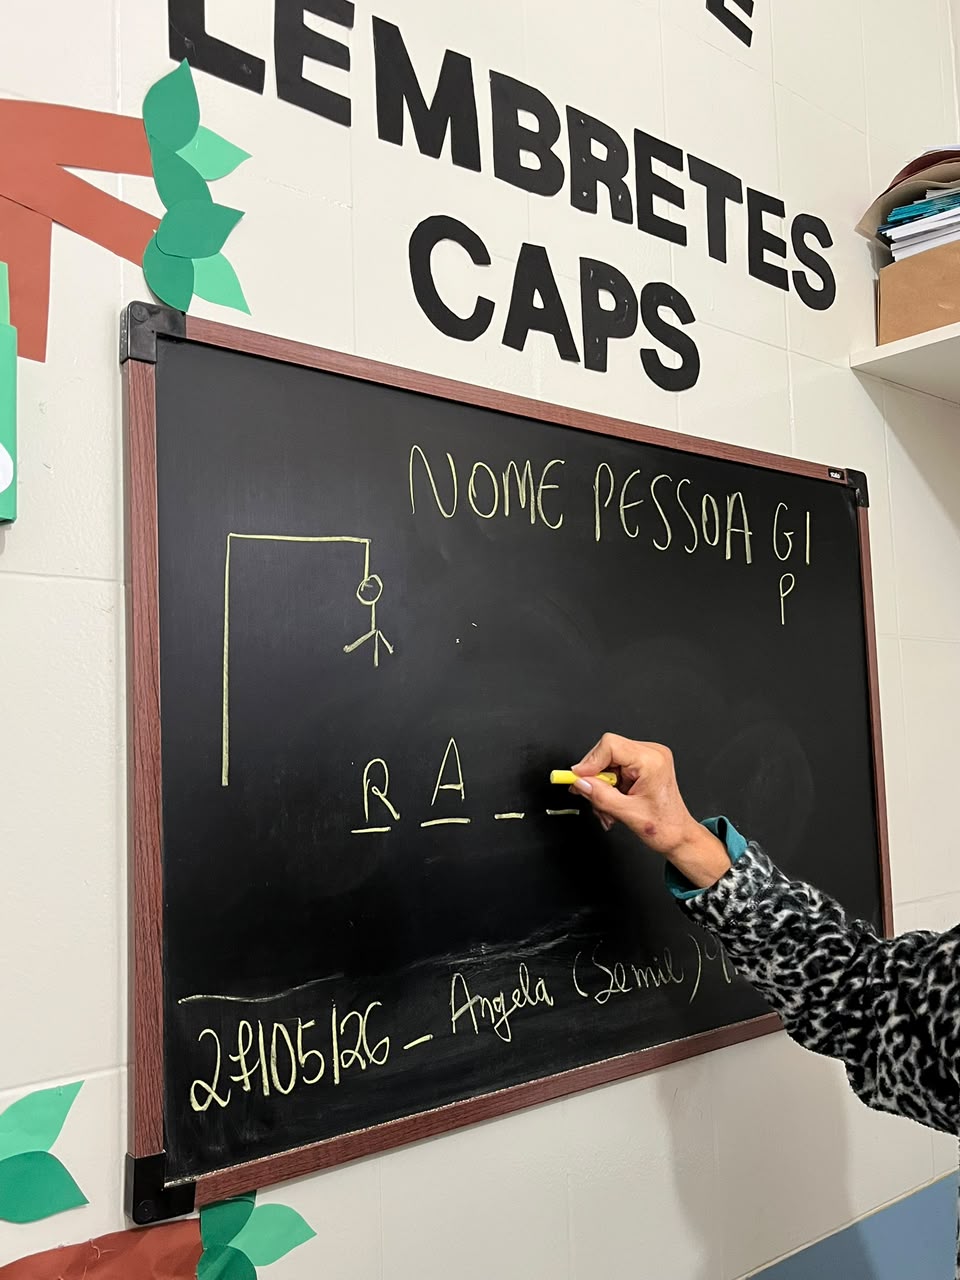 E
LEMBRETES
CAPS
NOME PESSOA G I
P
R A _ _
27/05/26 - Angela (Semil)